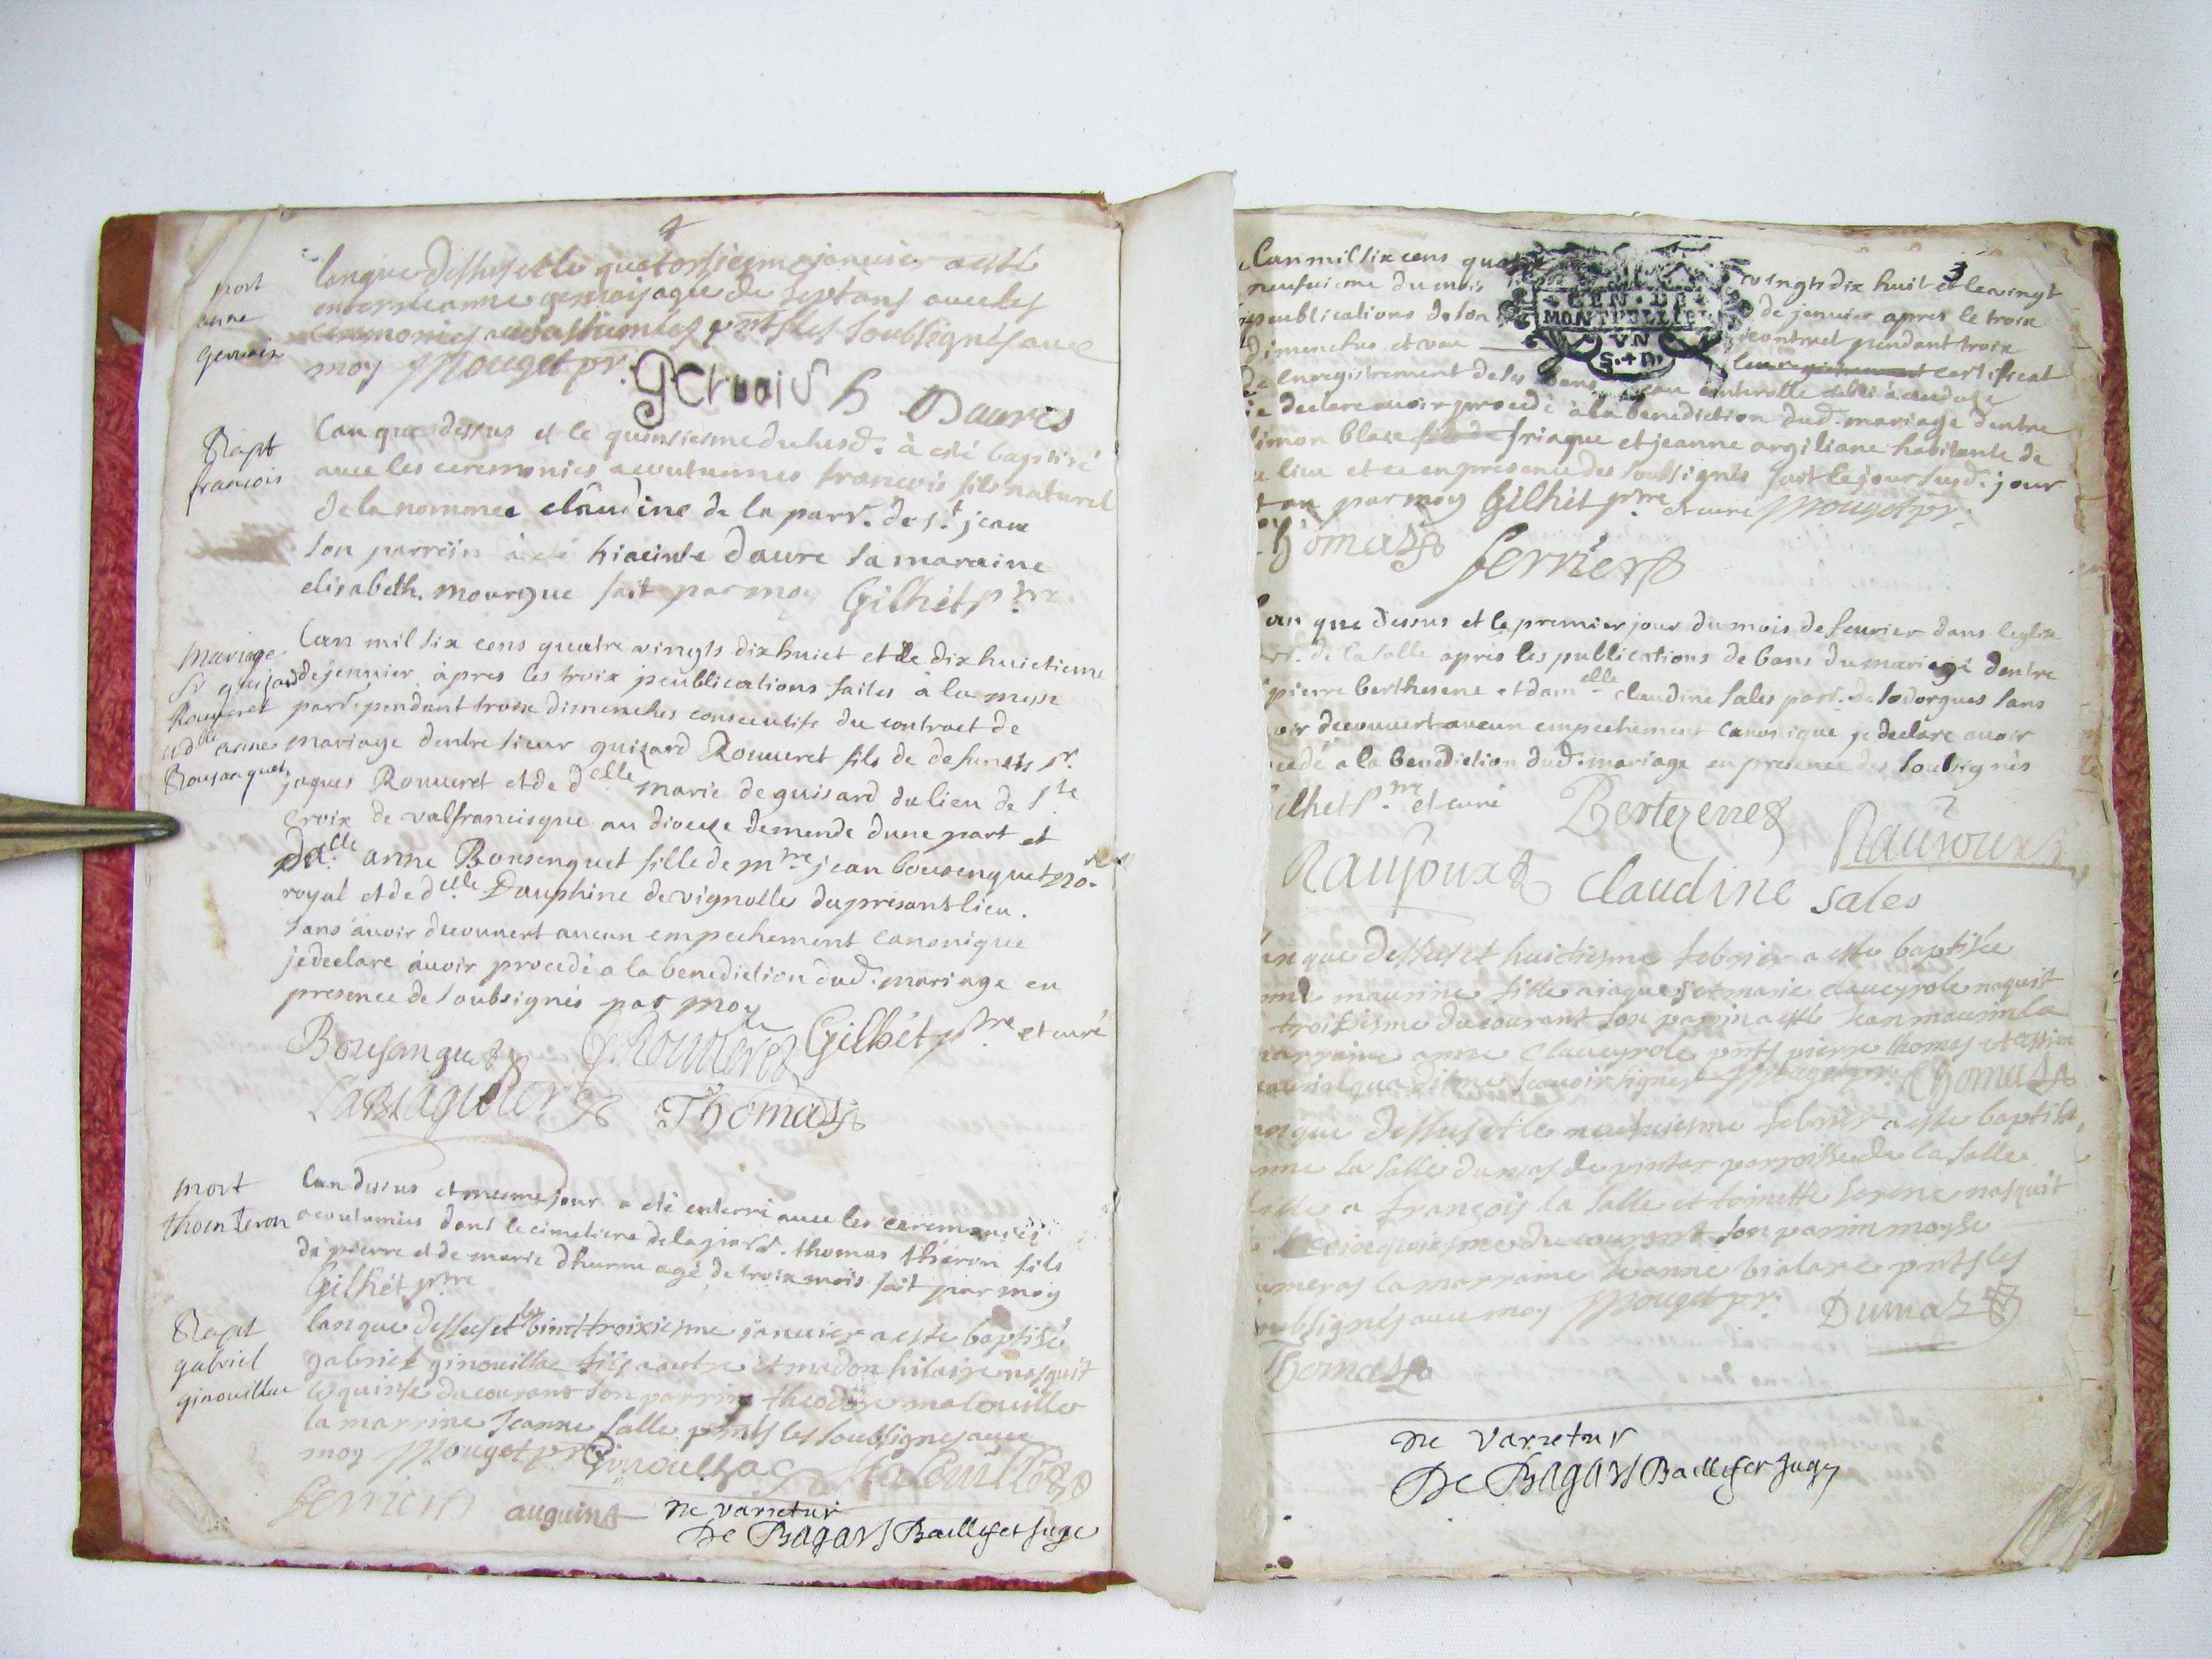 mort
anne
gervais
lanque dessus et le quatorsiesme janvier a esté
enterrée anne gervais agée de sept ans avec les
ceremonies accoustumées pnts les soubsignés avec
moy Mouget pr.
gervais h Daures
Bapt
francois
Lan que dessus et le quinsiesme du susd. à esté baptisé
avec les ceremonies acoutumees francois fils naturel
de la nommee claudine de la parr. de s.t jean
son parrein à eté hiacinte daure sa maraine
elisabeth mourgue fait par moy Gilhét ptre
Mariage
Sr guizard
Rouveret
et dlle anne
Bousanquet
Lan mil six cens quatre vingts dix huict et le dix huictieme
de jenvier àpres les troix peublications faites à la messe
parr. pendant troix dimenches consecutifs du contract de
mariage dentre sieur guizard Rouveret fils de defunts sr.
jaques Rouveret et de d.elle marie de guisard du lieu de Ste
Croix de valfrancisque au dioceze de mende dune part et
delle anne Bousenquet fille de mtre jean bousenquet no.re
royal et de d.elle Dauphine de vignolles du presant lieu.
sans àvoir decouvert aucun empechement canonique
je declare àvoir procedé a la benediction dud. mariage en
presence de soubsignés par moy
Bousanquet Rouveret Gilhét ptre et curé
Labraguier Thomas
mort
thom teron
Lan dessus et meme jour a eté enterré avec les ceremonies
acoutumées dans le cimetiere de la parr. thomas théron fils
de pierre et de marie dhurm agé de troix mois fait par moy
Gilhét ptre
Bapt
gabriel
ginouillac
lan que dessus et le vint troixiesme janvier a este baptisé
gabriel ginouillac fils a autre et madon hilaire nasquit
le quinse du courant son parrin theodore malouille
la marrine Jeanne salle pnts les soubsignes avec
moy Mouget pr Ginoulhac Malouille
ferrier auguin
Ne varietur
De Bagars Baillif et juge
3
Lan mil six cens qua vingts dix huit et le vingt
neufvieme du mois de jenvier apres le troix
peublications de son contract pendant troix
dimenches et veu certificat
enregistrement de
je declare avoir procedé à la benediction dud. mariage dentre
simon blase friaque et jeanne argiliane habitante de
ce lieu et ce en presence des soubsignés fait le jour susd. jour
et an par moy Gilhét ptre et curé Mouget pr.
Thomas
ferrier
GEN. DE
MONTPELLIER
VN
S.+D.
Lan que dessus et le premier jour du mois de fevrier dans leglise
parr. de la salle apres les publications de bans du mariage dentre
pierre berthesene et damelle claudine sales parr. de sodorgues sans
avoir decouvert aucun empechement canonique je declare avoir
procedé a la benediction dud. mariage en presence des soubsignés
Gilhet ptre et curé Bertezene Raujoux
Raujoux Claudine sales
lanque dessus et huictiesme febrier a este baptisée
maurine fille a jaques et marie claveyrole naquit
troisiesme du courant son parrin a esté Jean maurin la
marraine anne claveyrole pnts pierre thomas et
qua dit ne scavoir signer Mouget pr. Thomas
lanque dessus et le neufviesme febrier a este baptisée
anne La salle du mas de pintar parroisse de la salle
fille a françois la salle et toinette serene nasquit
le cinquiesme du courant son parrin moyse
la marraine Jeanne vialare pnts les
soubsignés avec moy Mouget pr. Dumas
Thomas
Ne varietur
De Bagars Baillif et juge